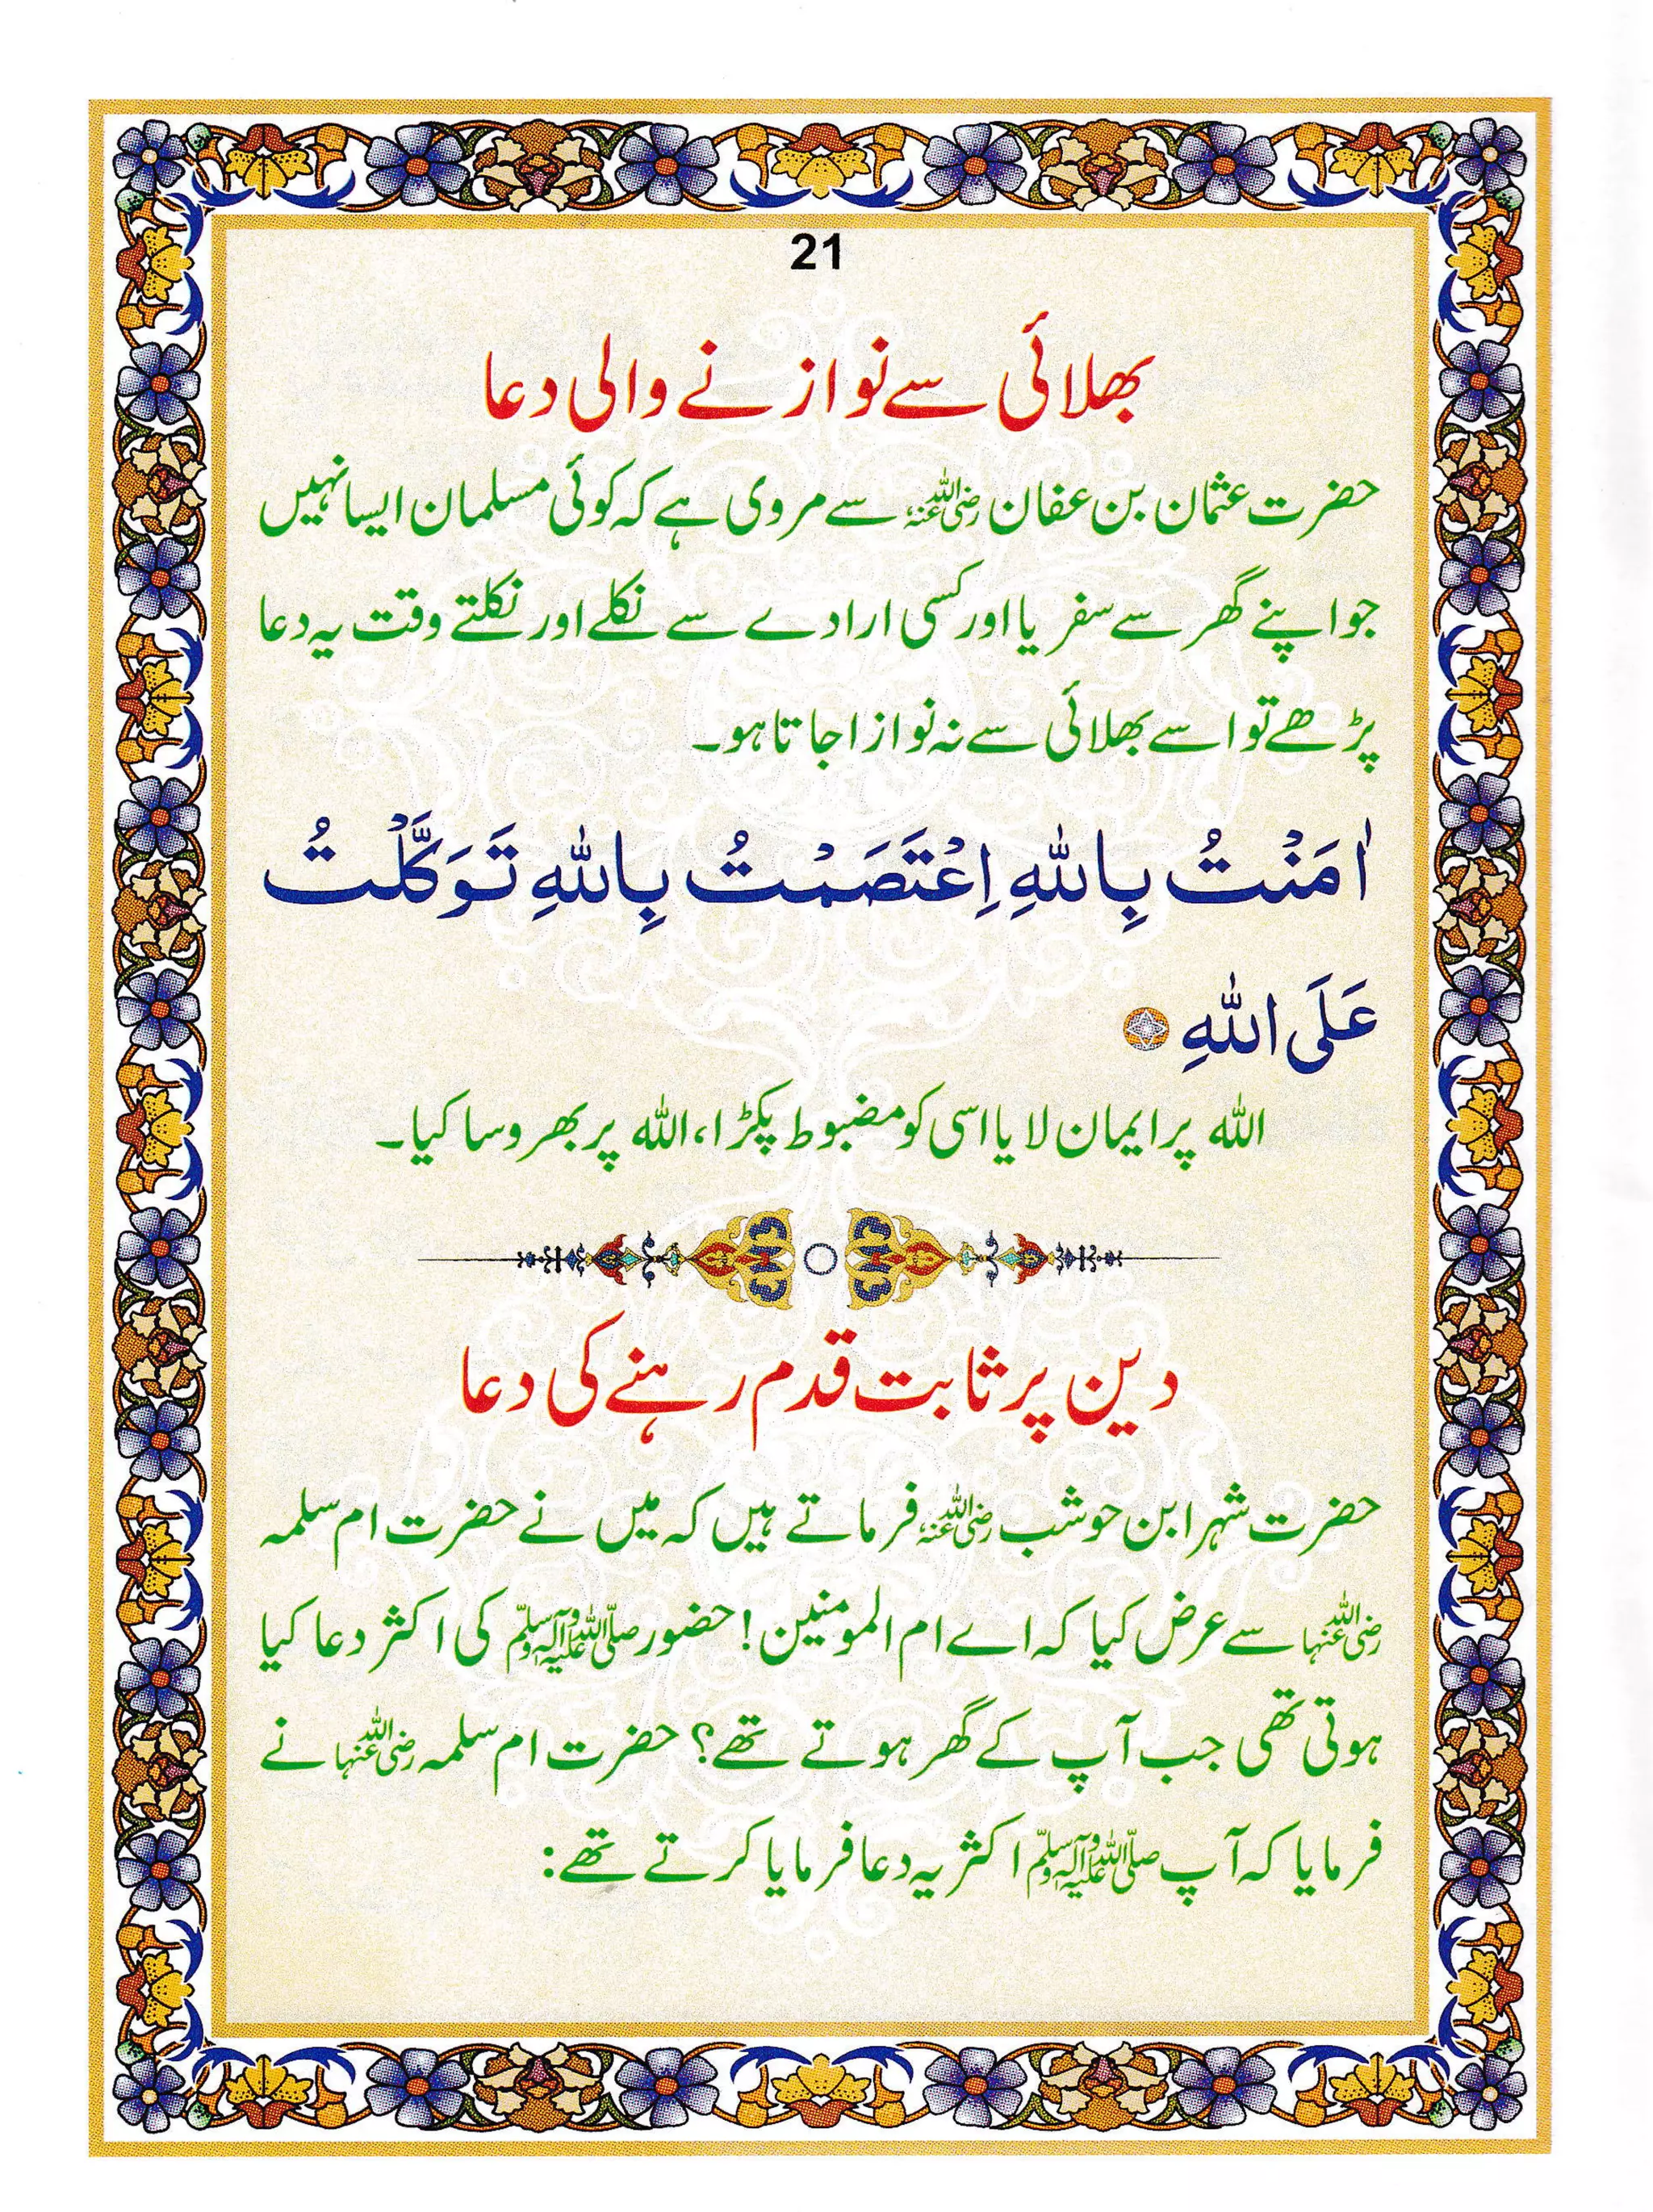 21
بھلائی سے نوازنے والی دعا
حضرت عثمان بن عفان رضی اللہ عنہ سے مروی ہے کہ کوئی مسلمان ایسا نہیں
جو اپنے گھر سے سفر یا اور کسی ارادے سے نکلے اور نکلتے وقت یہ دعا
پڑھے تو اسے بھلائی سے نہ نوازا جاتا ہو۔
اٰمَنْتُ بِاللّٰهِ اِعْتَصَمْتُ بِاللّٰهِ تَوَكَّلْتُ
عَلَى اللّٰهِ
اللہ پر ایمان لایا اسی کو مضبوط پکڑا، اللہ پر بھروسا کیا۔
دین پر ثابت قدم رہنے کی دعا
حضرت شہر ابن حوشب رضی اللہ عنہ فرماتے ہیں کہ میں نے حضرت ام سلمہ
رضی اللہ عنہا سے عرض کیا کہ اے ام المومنین! حضور صلی اللہ علیہ وآلہ وسلم کی اکثر دعا کیا
ہوتی تھی جب آپ کے گھر ہوتے تھے؟ حضرت ام سلمہ رضی اللہ عنہا نے
فرمایا کہ آپ صلی اللہ علیہ وآلہ وسلم اکثر یہ دعا فرمایا کرتے تھے: